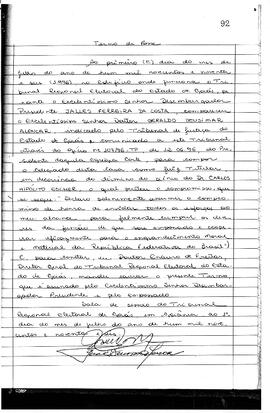 92
Termo de Posse
Ao primeiro (1º) dia do mês de
julho do ano de hum mil novecentos e noventa e
seis (1996) no edifício onde funciona o Tri
bunal Regional Eleitoral do Estado de Goiás, pe
rante o Excelentíssimo Senhor Desembargador
Presidente JALLES FERREIRA DA COSTA, compareceu
o Excelentíssimo Senhor Doutor GERALDO DEUSIMAR
ALENCAR, indicado pelo Tribunal de Justiça do
Estado de Goiás e comunicado a este Tribunal
através do Ofício nº, de 12.06.96, do Pre
sidente daquela Egrégia Corte, para compor
o Colegiado desta Casa como Juiz Titular
em decorrência do término do biênio do Dr. CARLOS
HIPÓLITO ESCHER, o qual prestou o compromisso que
se segue: "Declaro solenemente assumir o compro
misso de honra de envidar todos os esforços ao
meu alcance, para fielmente cumprir os de
veres da função de que sou empossado e coope
rar eficazmente para o engrandecimento moral
e material da República Federativa do Brasil".
E, para constar, eu Doutor de Freitas,
Diretor Geral do Tribunal Regional Eleitoral do Esta
do de Goiás, mandei lavrar o presente Termo,
que é assinado pelo Excelentíssimo Senhor Desembar
gador Presidente e pelo empossado.
Sala de sessão do Tribunal
Regional Eleitoral de Goiás, em Goiânia ao 1º
dia do mês de julho do ano de hum mil nove
centos e noventa e seis